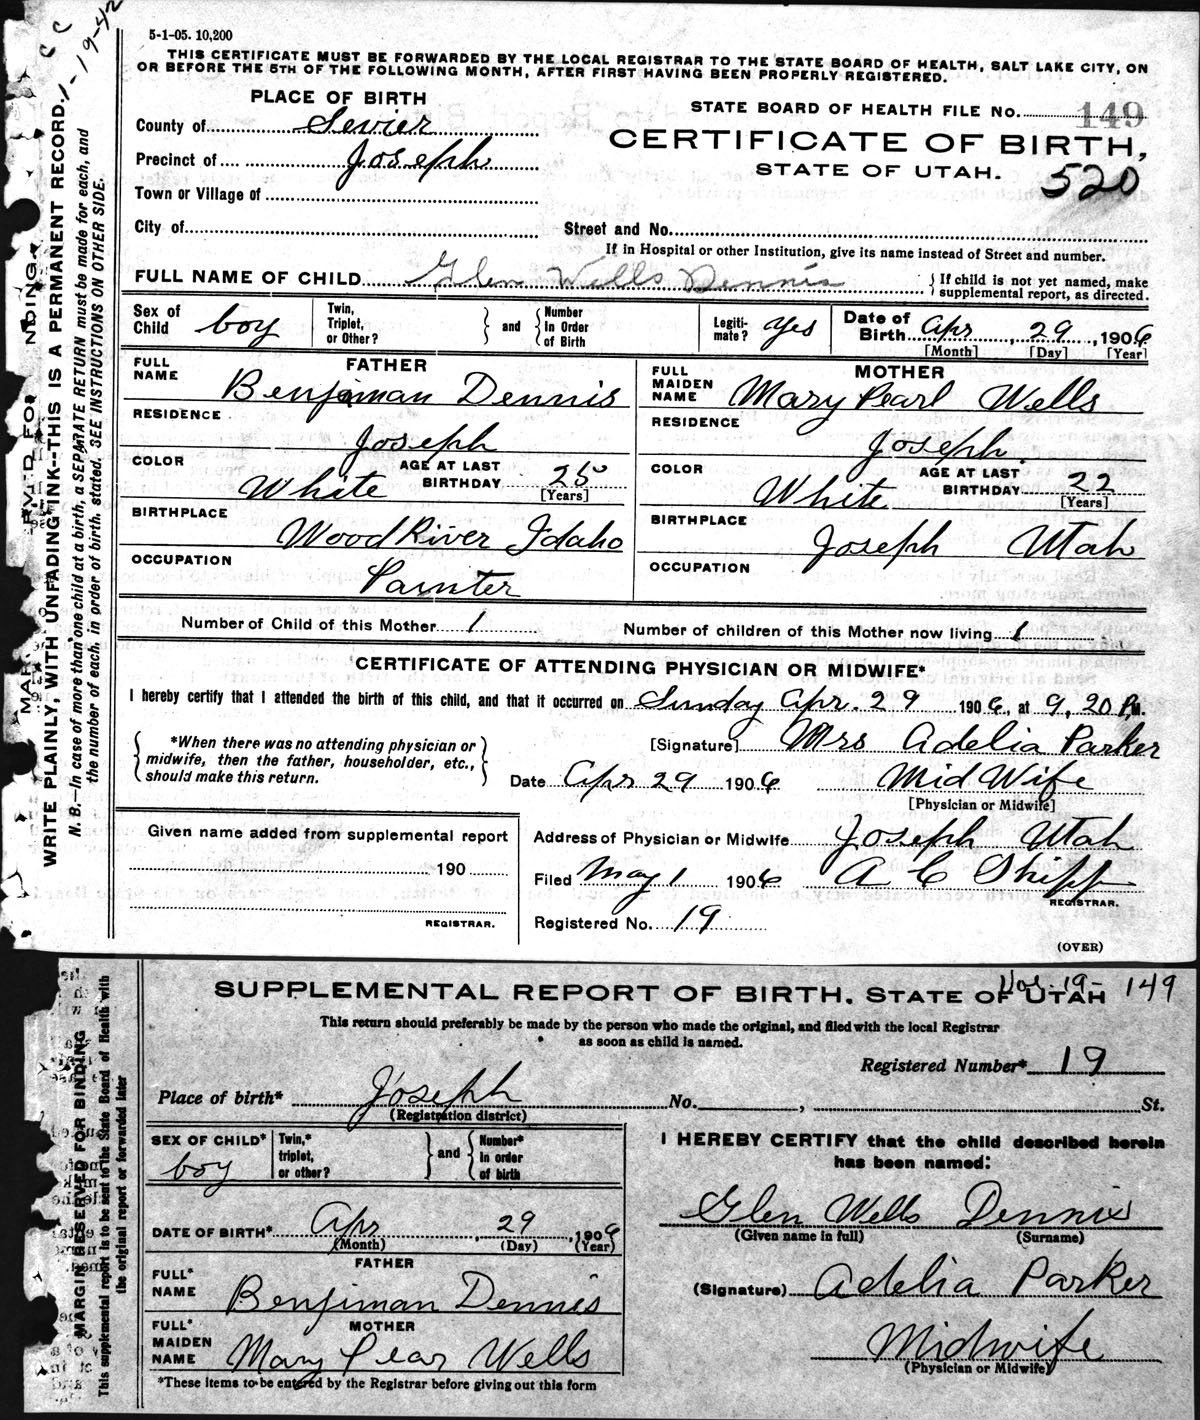 C C
1-19-42
5-1-05. 10,200
THIS CERTIFICATE MUST BE FORWARDED BY THE LOCAL REGISTRAR TO THE STATE BOARD OF HEALTH, SALT LAKE CITY, ON
OR BEFORE THE 5TH OF THE FOLLOWING MONTH, AFTER FIRST HAVING BEEN PROPERLY REGISTERED.
PLACE OF BIRTH
STATE BOARD OF HEALTH FILE No. 149
County of Sevier
CERTIFICATE OF BIRTH,
Precinct of Joseph
STATE OF UTAH.
520
Town or Village of
City of
Street and No.
If in Hospital or other Institution, give its name instead of Street and number.
FULL NAME OF CHILD Glen Wells Dennis
{ If child is not yet named, make
supplemental report, as directed.
Sex of Child boy
Twin, Triplet, or Other? } and { Number In Order of Birth
Legitimate? Yes
Date of Birth Apr, 29, 1906
[Month] [Day] [Year]
FATHER
FULL NAME Benjiman Dennis
RESIDENCE Joseph
COLOR White
AGE AT LAST BIRTHDAY 25
[Years]
BIRTHPLACE Wood River Idaho
OCCUPATION Painter
MOTHER
FULL MAIDEN NAME Mary Pearl Wells
RESIDENCE Joseph.
COLOR White
AGE AT LAST BIRTHDAY 22
[Years]
BIRTHPLACE Joseph Utah
OCCUPATION
Number of Child of this Mother 1
Number of children of this Mother now living 1
CERTIFICATE OF ATTENDING PHYSICIAN OR MIDWIFE*
I hereby certify that I attended the birth of this child, and that it occurred on Sunday Apr. 29 1906, at 9,20 P.M.
{ *When there was no attending physician or
midwife, then the father, householder, etc.,
should make this return. }
[Signature] Mrs Adelia Parker
Date Apr 29 1906 Mid Wife
[Physician or Midwife]
Given name added from supplemental report
190
REGISTRAR.
Address of Physician or Midwife Joseph Utah
Filed May 1 1906 A C Shipp
REGISTRAR.
Registered No. 19
(OVER)
WRITE PLAINLY, WITH UNFADING INK--THIS IS A PERMANENT RECORD.
N. B.—In case of more than one child at a birth, a SEPARATE RETURN must be made for each, and
the number of each, in order of birth, stated. SEE INSTRUCTIONS ON OTHER SIDE.
SUPPLEMENTAL REPORT OF BIRTH. STATE OF UTAH
19- 149
This return should preferably be made by the person who made the original, and filed with the local Registrar
as soon as child is named.
Registered Number* 19
Place of birth* Joseph No. , St.
(Registration district)
SEX OF CHILD* boy
Twin,* triplet, or other? } and { Number* in order of birth
DATE OF BIRTH* Apr, 29, 1906
(Month) (Day) (Year)
FATHER
FULL* NAME Benjiman Dennis
MOTHER
FULL* MAIDEN NAME Mary Pear Wells
*These items to be entered by the Registrar before giving out this form
I HEREBY CERTIFY that the child described herein
has been named:
Glen Wells Dennis
(Given name in full) (Surname)
(Signature) Adelia Parker
Midwife
(Physician or Midwife)
MARGIN RESERVED FOR BINDING
This supplemental report is to be sent to the State Board of Health with
the original report or forwarded later